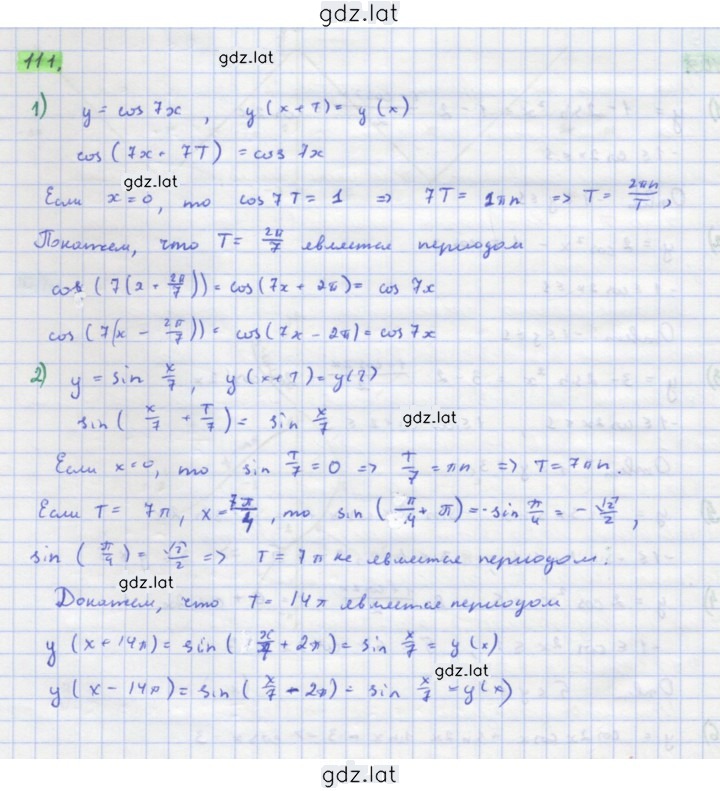 gdz.lat
111. gdz.lat
1) y = cos 7x , y (x + T) = y (x)
cos (7x + 7T) = cos 7x
gdz.lat
Если x = 0, то cos 7T = 1 => 7T = 2πn => T = 2πn/T ,
Покажем, что T = 2π/7 является периодом
cos (7(x + 2π/7)) = cos (7x + 2π) = cos 7x
cos (7(x - 2π/7)) = cos (7x - 2π) = cos 7x
2) y = sin x/7 , y (x + T) = y(?)
sin ( x/7 + T/7 ) = sin x/7 gdz.lat
Если x = 0, то sin T/7 = 0 => T/7 = πn => T = 7πn.
Если T = 7π, x = 7π/4 , то sin ( π/4 + π) = - sin π/4 = - √2/2 ,
sin ( π/4 ) = √2/2 => T = 7π не является периодом.
gdz.lat
Докажем, что T = 14π является периодом
y (x + 14π) = sin ( x/7 + 2π) = sin x/7 = y (x)
gdz.lat
y ( x - 14π) = sin ( x/7 - 2π) = sin x/7 = y(x)
gdz.lat